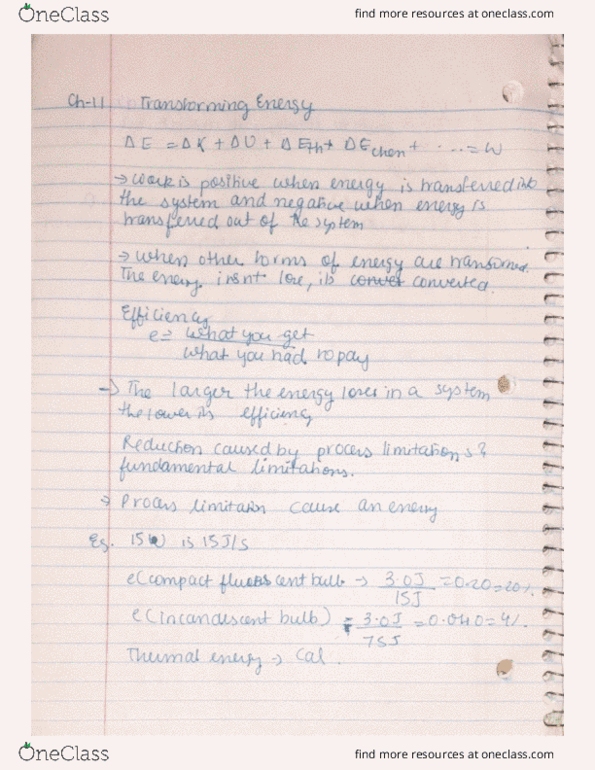 OneClass
find more resources at oneclass.com
Ch-11 Transforming Energy
ΔE = ΔK + ΔU + ΔEth + ΔEchem + ..... = W
→ Work is positive when energy is transferred into
the system and negative when energy is
transferred out of the system
→ When other forms of energy are transformed.
The energy isn't lose, its convet converted.
Efficiency
e = what you get
what you had to pay
→ The larger the energy loses in a system
the lower its efficiency
Reduction caused by process limitations &
fundamental limitations.
→ Process limitation cause an energy
Eg. 15W is 15J/s
e(compact fluorescent bulb → 3.0J = 0.20 = 20%
15J
e(incandescent bulb) = 3.0J = 0.040 = 4%.
75J
Thermal energy → Cal.
OneClass
find more resources at oneclass.com